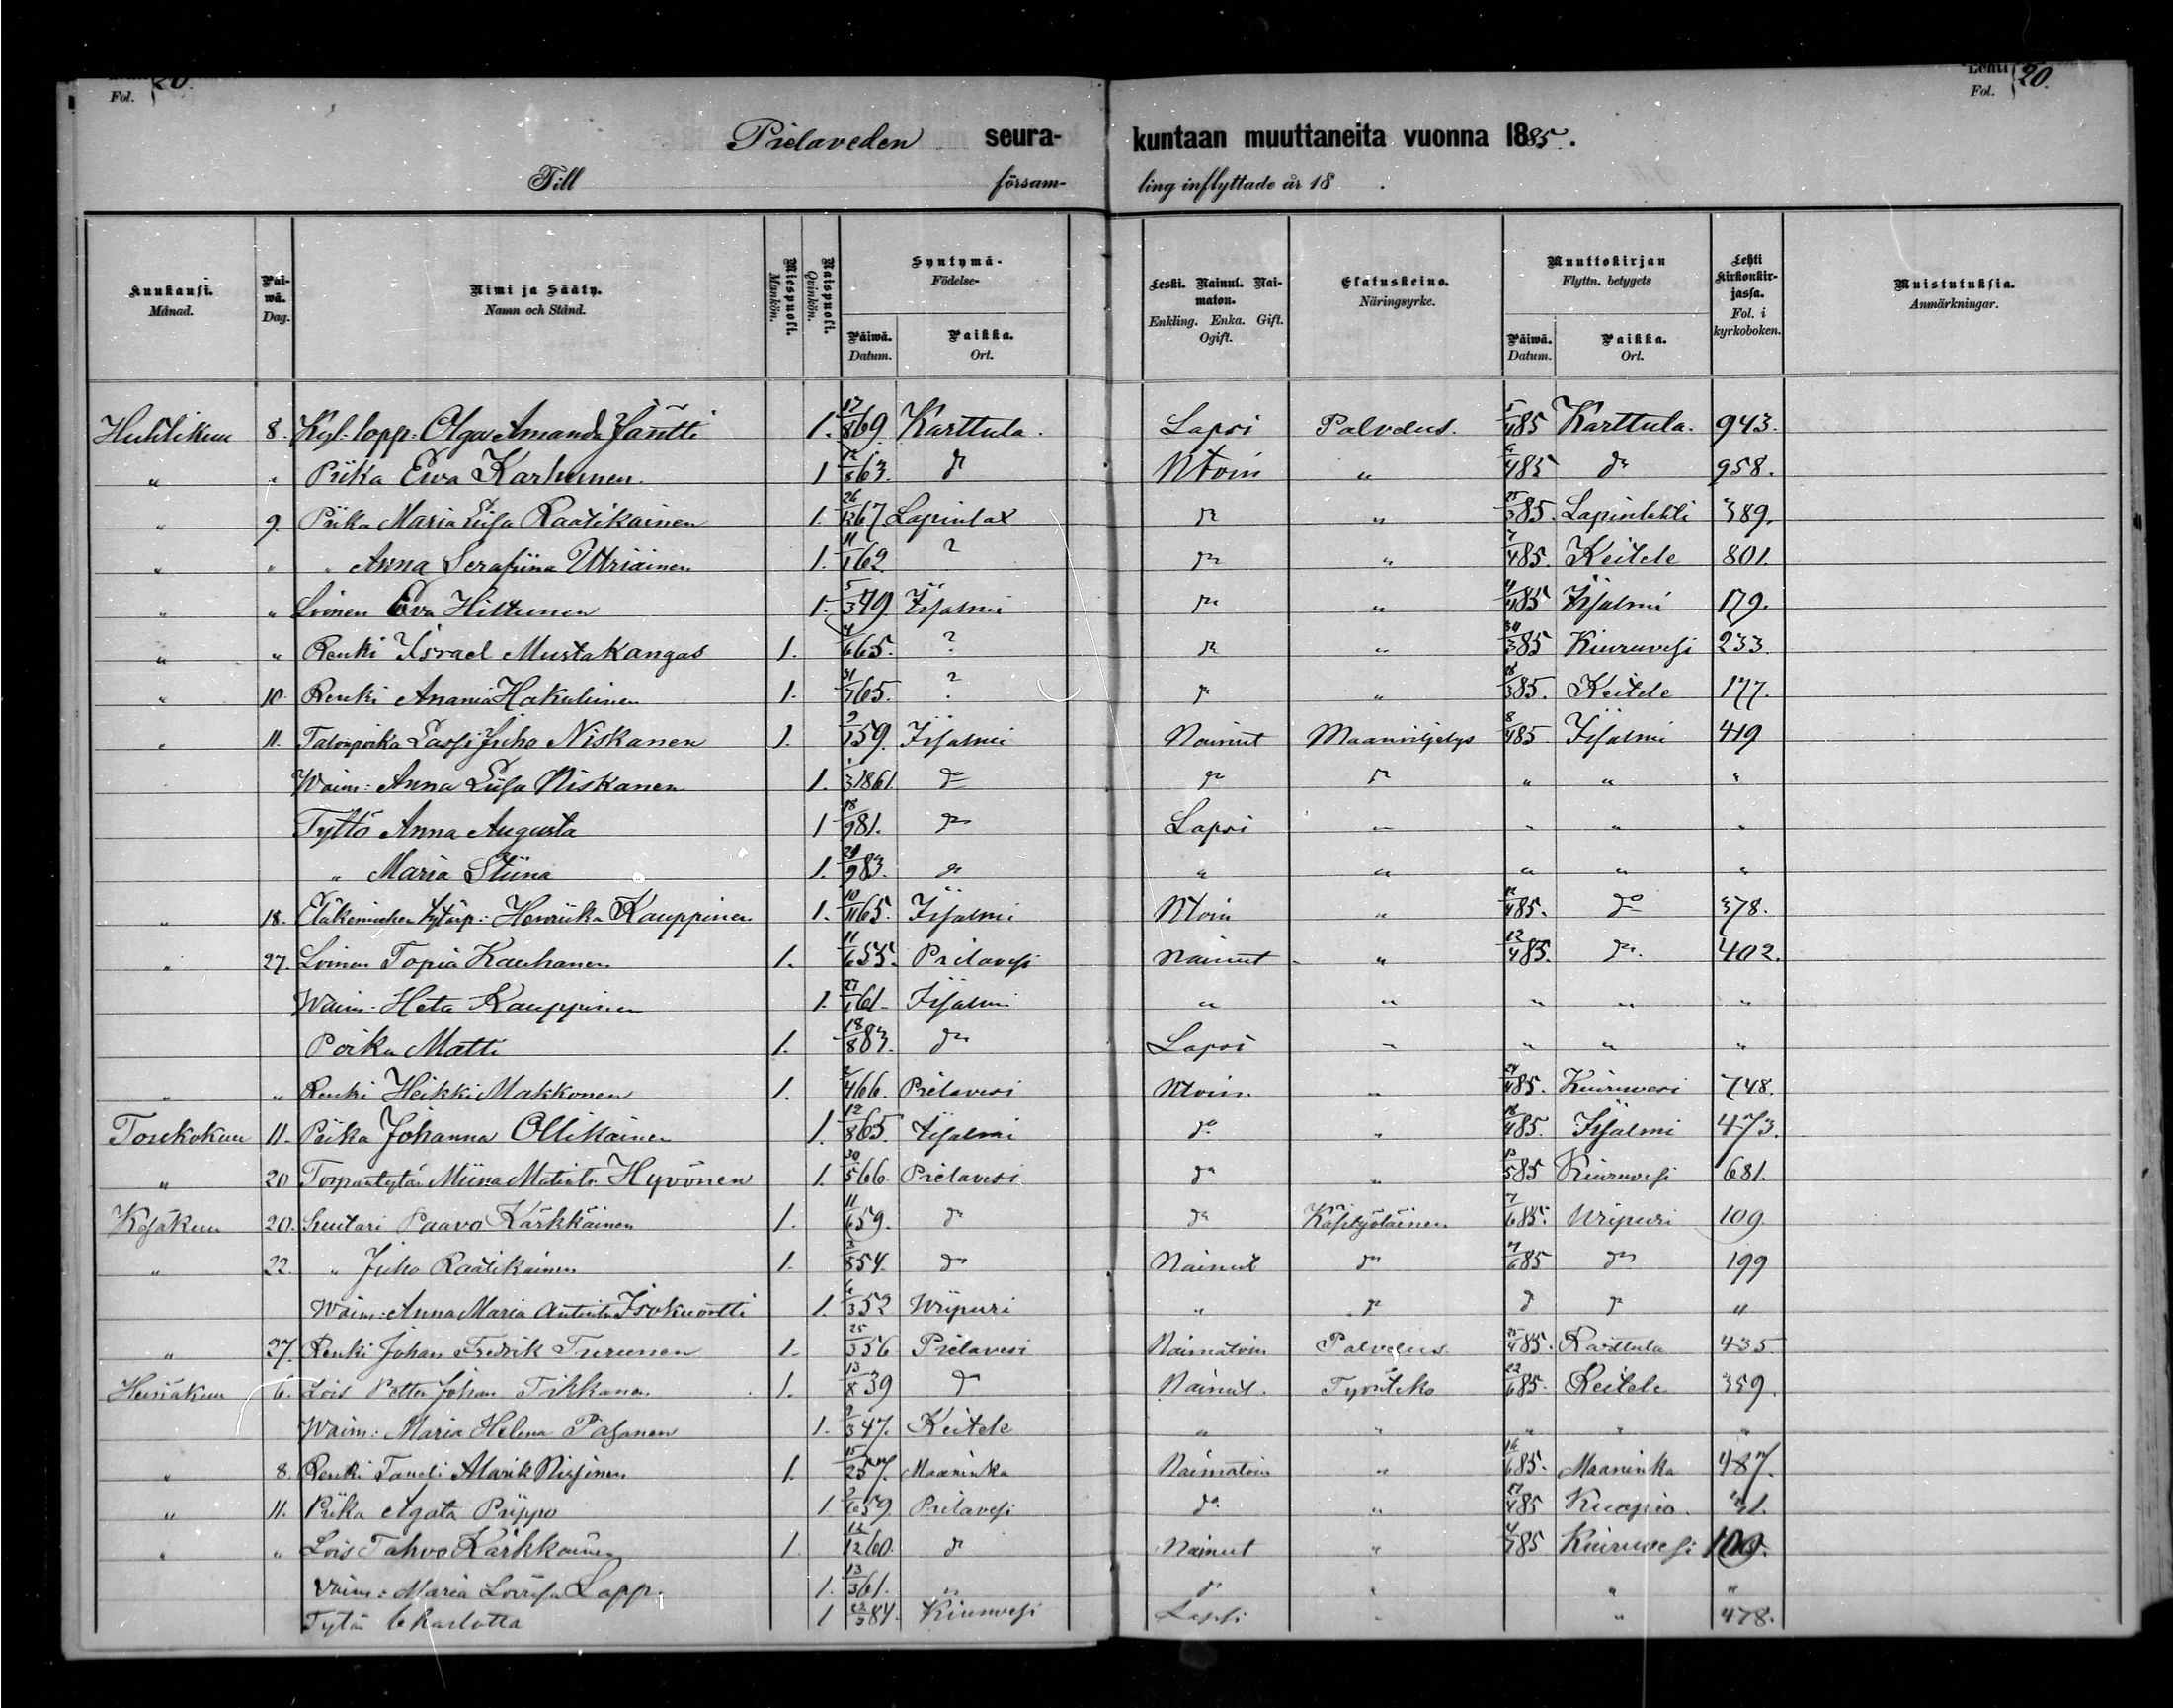 Fol. 20.
Lehti 20.
Fol.
Pielaveden seura- kuntaan muuttaneita vuonna 1885.
Till försam- ling inflyttade år 18 .
Kuukausi. Månad.
Päi-wä. Dag.
Nimi ja Sääty. Namn och Stånd.
Miespuoli. Mankön.
Naispuoli. Qvinkön.
Syntymä- Födelse-
Päiwä. Datum.
Paikka. Ort.
Leski. Nainut. Nai-maton. Enkling. Enka. Gift. Ogift.
Elatuskeino. Näringsyrke.
Muuttokirjan Flyttn. betygets
Päiwä. Datum.
Paikka. Ort.
Lehti kirkonkir-jassa. Fol. i kyrkoboken.
Muistutuksia. Anmärkningar.
Huhtikuu 8. Kyl: lapp: Olga Amanda Jäntti 1. 17/8 69. Karttula. Lapsi Palvelus. 5/4 85 Karttula. 943.
" " Piika Ewa Karhunen. 1 12/8 63. do Ntoin " 6/4 85 do 958.
" 9. Piika Maria Liisa Raatikainen 1. 26/12 67 Lapinlax do " 25/3 85. Lapinlahti 389.
" " " Anna Serafiina Utriainen 1. 11/1 62. ? do " 7/4 85. Keitele 801.
" " Loinen Eva Hiltunen 1. 5/3 49. Iisalmi do " 4/4 85 Iisalmi 179.
" " Renki Israel Mustakangas 1. 4/6 65. ? do " 30/3 85 Kiuruvesi 233.
" 10. Renki Anania Hakulinen 1. 31/7 65. ? do " 28/3 85. Keitele 177.
" 11. Talonpoika Lassi Juho Niskanen 1. 9/1 59. Iisalmi Nainut Maanviljelys 8/4 85 Iisalmi 419
Waim: Anna Liisa Niskanen 1. 1/3 1861. do do do " " "
Tyttö Anna Augusta 1 18/9 81. do Lapsi " " " "
" Maria Stiina 1. 29/9 83. do " " " " "
" 18. tytärp: Henriika Kauppinen 1. 10/11 65. Iisalmi Ntoin " 12/4 85. do 378.
" 27. Loinen Topia Kauhanen 1. 11/6 55. Pielavesi Nainut " 12/4 85. do 402.
Waim: Heta Kauppinen 1. 27/1 61. Iisalmi " " " " "
Poika Matti 1. 18/8 83. do Lapsi " " " "
" " Renki Heikki Makkonen 1. 2/4 66. Pielavesi Ntoin. " 24/4 85. Kiuruvesi 748.
Toukokuu 11. Piika Johanna Ollikainen 1. 12/8 65. Iisalmi do " 18/4 85. Iisalmi 473.
" 20 Torpantytär Miina Matintr Hyvönen 1. 30/5 66. Pielavesi do " 13/5 85 Kiuruvesi 681.
Kesäkuu 20. Suutari Paavo Kärkkäinen 1. 11/6 59. do do Käsityöläinen 7/6 85. Wiipuri 109.
" 22. " Juho Raatikainen 1. 2/8 54. do Nainut do 7/6 85 do 199
Waim: Anna Maria Antintr Isokuortti 1. 6/3 52 Wiipuri " do do do "
" 27. Renki Johan Fredrik Turunen 1. 25/3 56 Pielavesi Naimatoin Palvelus. 25/4 85. Karttula 435
Heinäkuu 6. Lois Petter Johan Tikkanen 1. 13/8 39 do Nainut. Työnteko 22/6 85. Keitele 359.
Waim: Maria Helena Pasanen 1. 9/3 47. Keitele " " " " "
" 8. Renki Taneli Alarik Nissinen 1. 15/2 57. Maaninka Naimatoin " 16/6 85. Maaninka 487.
" 11. Piika Agata Piippo 1. 2/6 59. Pielavesi do " 27/4 85 Kuopio.
" " Lois Tahvo Kärkkäinen 1. 12/12 60. do Nainut " 4/7 85 Kiuruvesi 109.
Waim: Maria Lovisa Lapp. 1. 13/3 61. " do " " "
Tytär Charlotta 1 84. Kiuruvesi Lapsi " " 478.